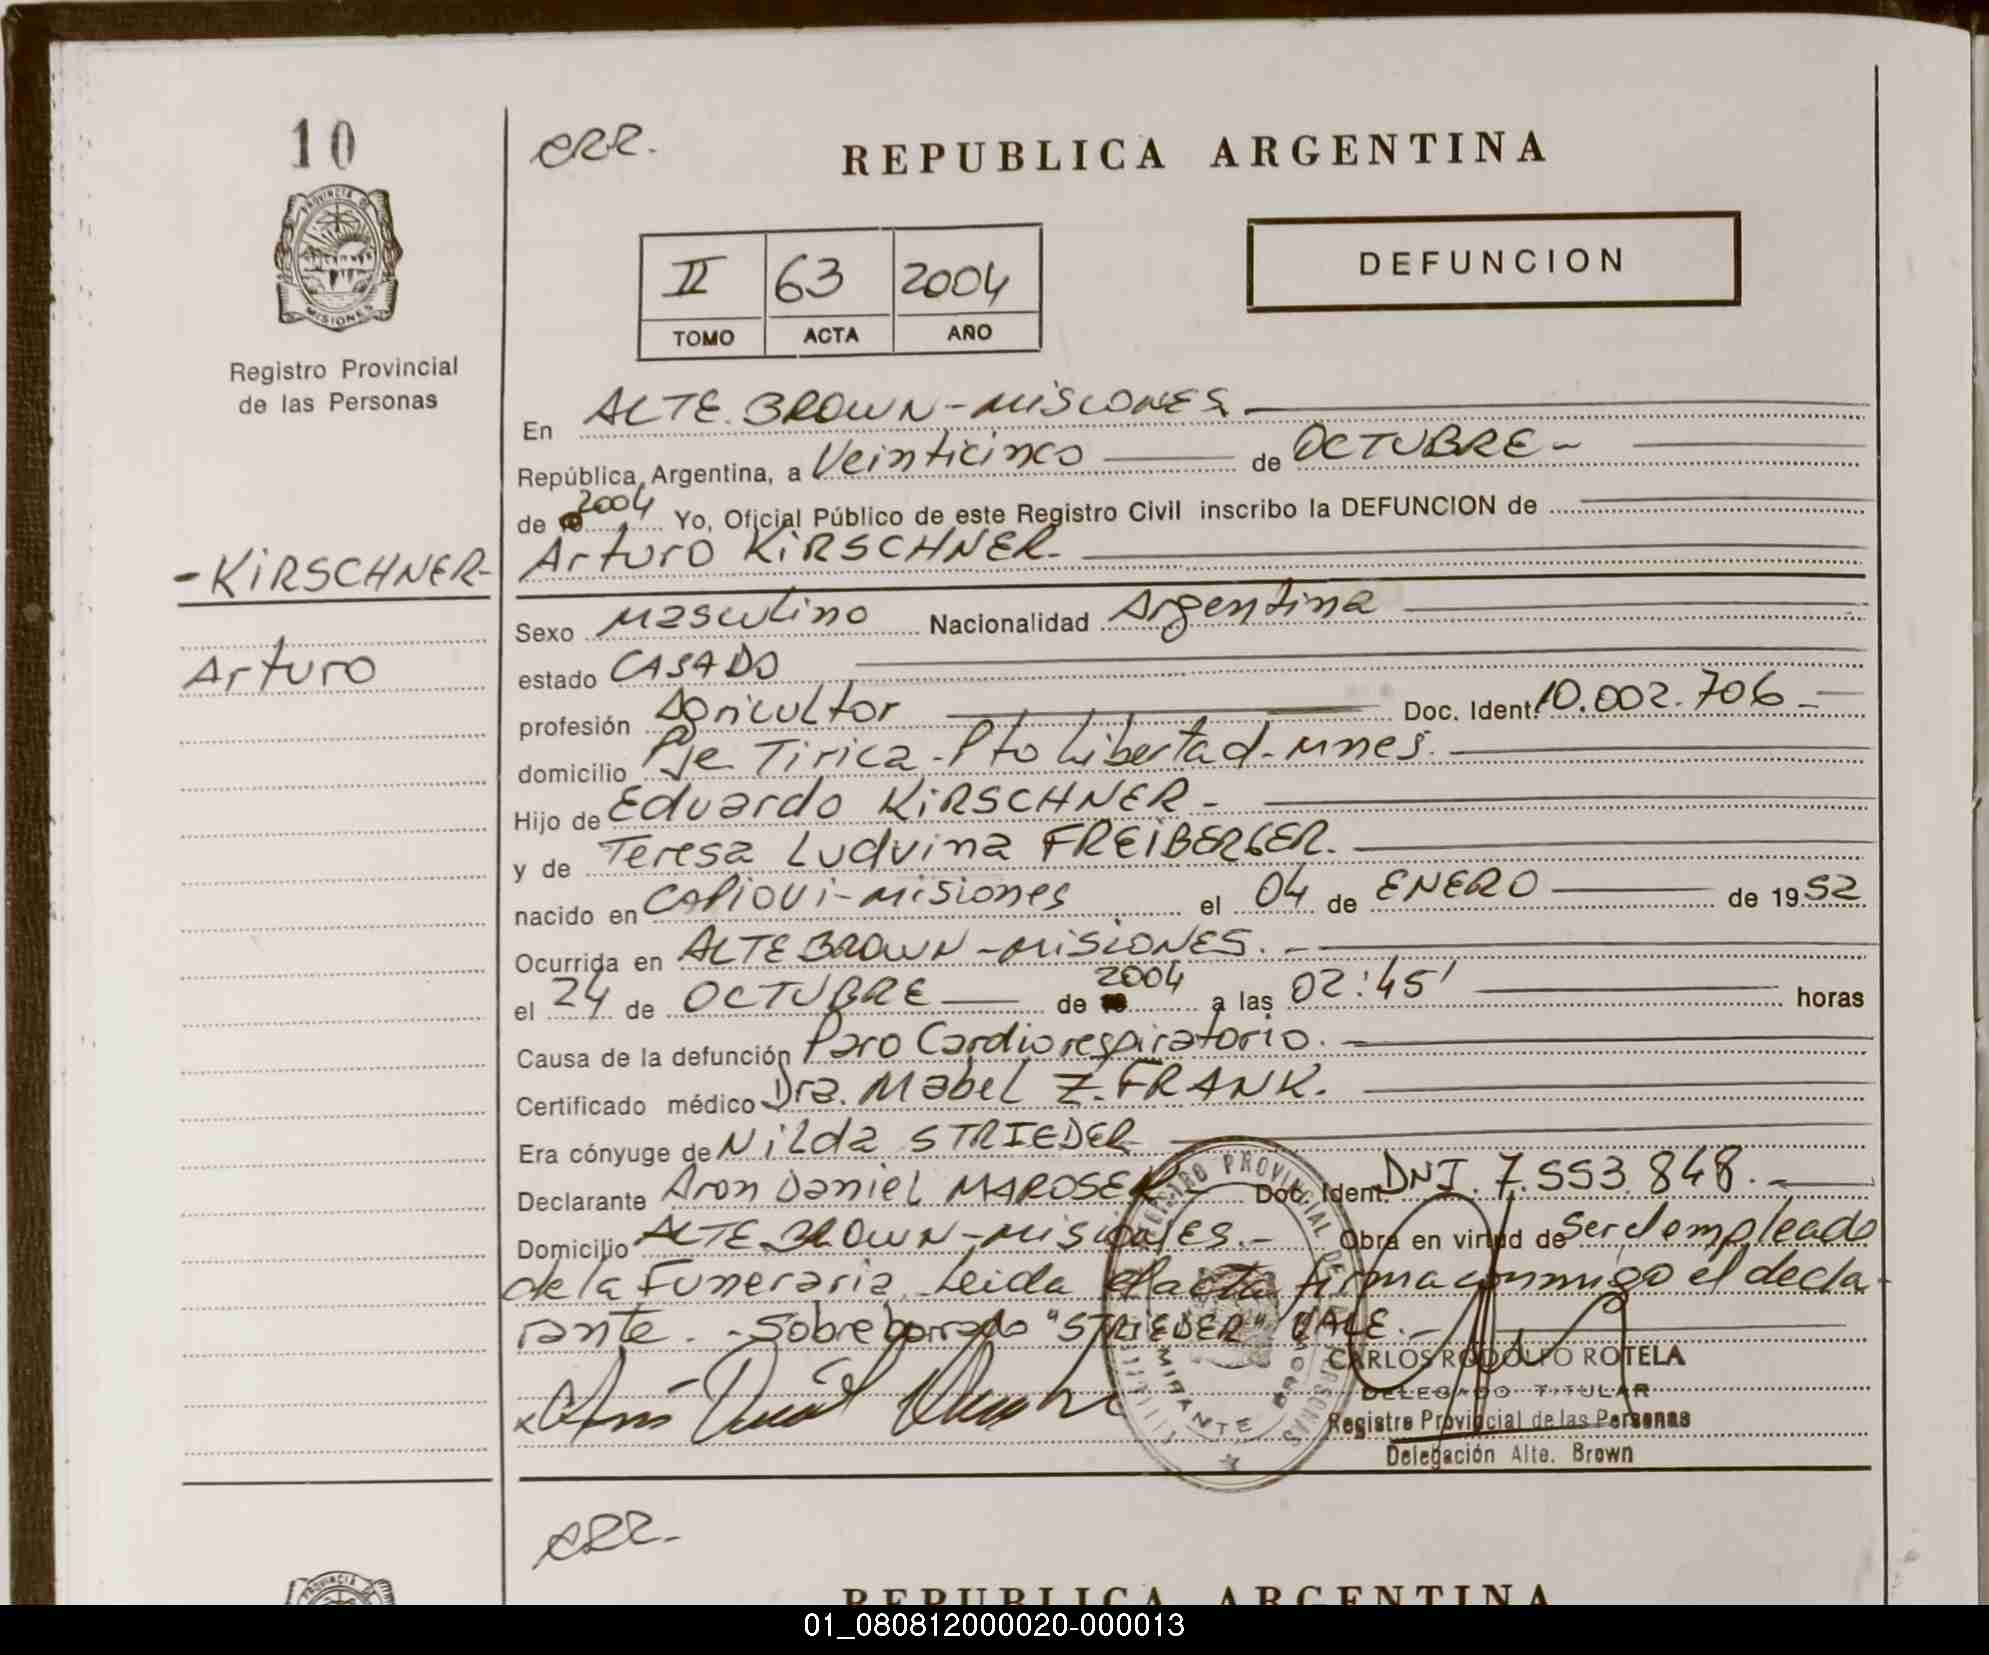 10
PROVINCIA DE
MISIONES
Registro Provincial
de las Personas
-KIRSCHNER-
Arturo
REPUBLICA ARGENTINA
II 63 2004
TOMO ACTA AÑO
DEFUNCION
En ALTE. BROWN-MISIONES
República Argentina, a Veinticinco de OCTUBRE-
de 2004 Yo, Oficial Público de este Registro Civil inscribo la DEFUNCION de
Arturo KIRSCHNER-
Sexo Masculino Nacionalidad Argentina
estado CASADO
profesión Agricultor Doc. Ident. 10.002.706-
domicilio Pje Tirica-Pto Libertad-Mnes.
Hijo de Eduardo KIRSCHNER-
y de Teresa Ludvina FREIBERGER.
nacido en CAPIOVI-Misiones el 04 de ENERO de 1952
Ocurrida en ALTE BROWN-MISIONES.-
el 24 de OCTUBRE de 2004 a las 02:45' horas
Causa de la defunción Paro Cardiorespiratorio.
Certificado médico Dra. Mabel Z. FRANK.
Era cónyuge de Nilda STRIEDER
Declarante Aron Daniel MAROSEK Doc. Ident. DNI. 7.553.848.-
Domicilio ALTE BROWN-MISIONES.- Obra en virtud de Ser el empleado
de la Funeraria. Leida el acta firma conmigo el decla-
rante.-Sobreborrado "STRIEDER" VALE.-
CARLOS RODOLFO ROTELA
DELEGADO TITULAR
Registro Provincial de las Personas
Delegación Alte. Brown
REGISTRO PROVINCIAL DE LAS PERSONAS
ALMIRANTE BROWN
REPUBLICA ARGENTINA
01_080812000020-000013